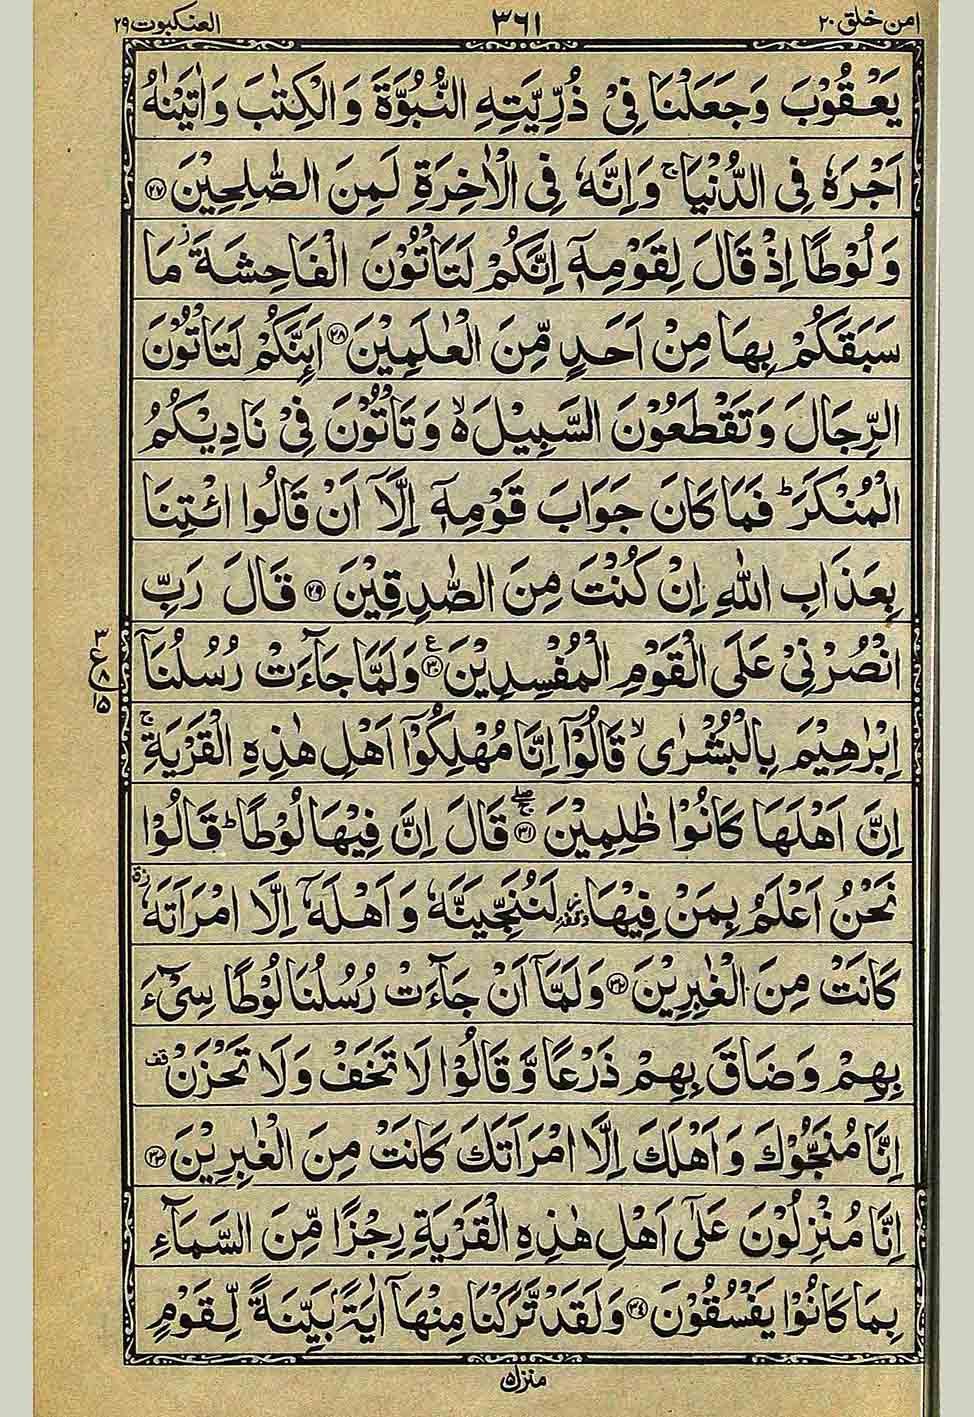 امن خلق ٢٠ ٣٦١ العنكبوت ٢٩
يَعْقُوْبَ وَجَعَلْنَا فِيْ ذُرِّيَّتِهِ النُّبُوَّةَ وَالْكِتٰبَ وَاٰتَيْنٰهُ
اَجْرَهٗ فِي الدُّنْيَا ۚ وَاِنَّهٗ فِي الْاٰخِرَةِ لَمِنَ الصّٰلِحِيْنَ ﴿٢٧﴾
وَلُوْطًا اِذْ قَالَ لِقَوْمِهٖٓ اِنَّكُمْ لَتَاْتُوْنَ الْفَاحِشَةَ ز مَا
سَبَقَكُمْ بِهَا مِنْ اَحَدٍ مِّنَ الْعٰلَمِيْنَ ﴿٢٨﴾ اَئِنَّكُمْ لَتَاْتُوْنَ
الرِّجَالَ وَتَقْطَعُوْنَ السَّبِيْلَ ۙ٥ وَتَاْتُوْنَ فِيْ نَادِيْكُمُ
الْمُنْكَرَ ؕ فَمَا كَانَ جَوَابَ قَوْمِهٖٓ اِلَّآ اَنْ قَالُوا ائْتِنَا
بِعَذَابِ اللّٰهِ اِنْ كُنْتَ مِنَ الصّٰدِقِيْنَ ﴿٢٩﴾ قَالَ رَبِّ
انْصُرْنِيْ عَلَى الْقَوْمِ الْمُفْسِدِيْنَ ﴿٣٠﴾ ع وَلَمَّا جَآءَتْ رُسُلُنَآ
٣ ع ٨ ١٥
اِبْرٰهِيْمَ بِالْبُشْرٰى ۙ قَالُوْٓا اِنَّا مُهْلِكُوْٓا اَهْلِ هٰذِهِ الْقَرْيَةِ ۚ
اِنَّ اَهْلَهَا كَانُوْا ظٰلِمِيْنَ ﴿٣١﴾ ۚ ۖ قَالَ اِنَّ فِيْهَا لُوْطًا ؕ قَالُوْا
نَحْنُ اَعْلَمُ بِمَنْ فِيْهَا ز وقفة لَنُنَجِّيَنَّهٗ وَاَهْلَهٗٓ اِلَّا امْرَاَتَهٗ زق
كَانَتْ مِنَ الْغٰبِرِيْنَ ﴿٣٢﴾ وَلَمَّآ اَنْ جَآءَتْ رُسُلُنَا لُوْطًا سِيْٓءَ
بِهِمْ وَضَاقَ بِهِمْ ذَرْعًا وَّقَالُوْا لَا تَخَفْ وَلَا تَحْزَنْ قف
اِنَّا مُنَجُّوْكَ وَاَهْلَكَ اِلَّا امْرَاَتَكَ كَانَتْ مِنَ الْغٰبِرِيْنَ ﴿٣٣﴾
اِنَّا مُنْزِلُوْنَ عَلٰٓى اَهْلِ هٰذِهِ الْقَرْيَةِ رِجْزًا مِّنَ السَّمَآءِ
بِمَا كَانُوْا يَفْسُقُوْنَ ﴿٣٤﴾ وَلَقَدْ تَّرَكْنَا مِنْهَآ اٰيَةًۢ بَيِّنَةً لِّقَوْمٍ
منزل ٥